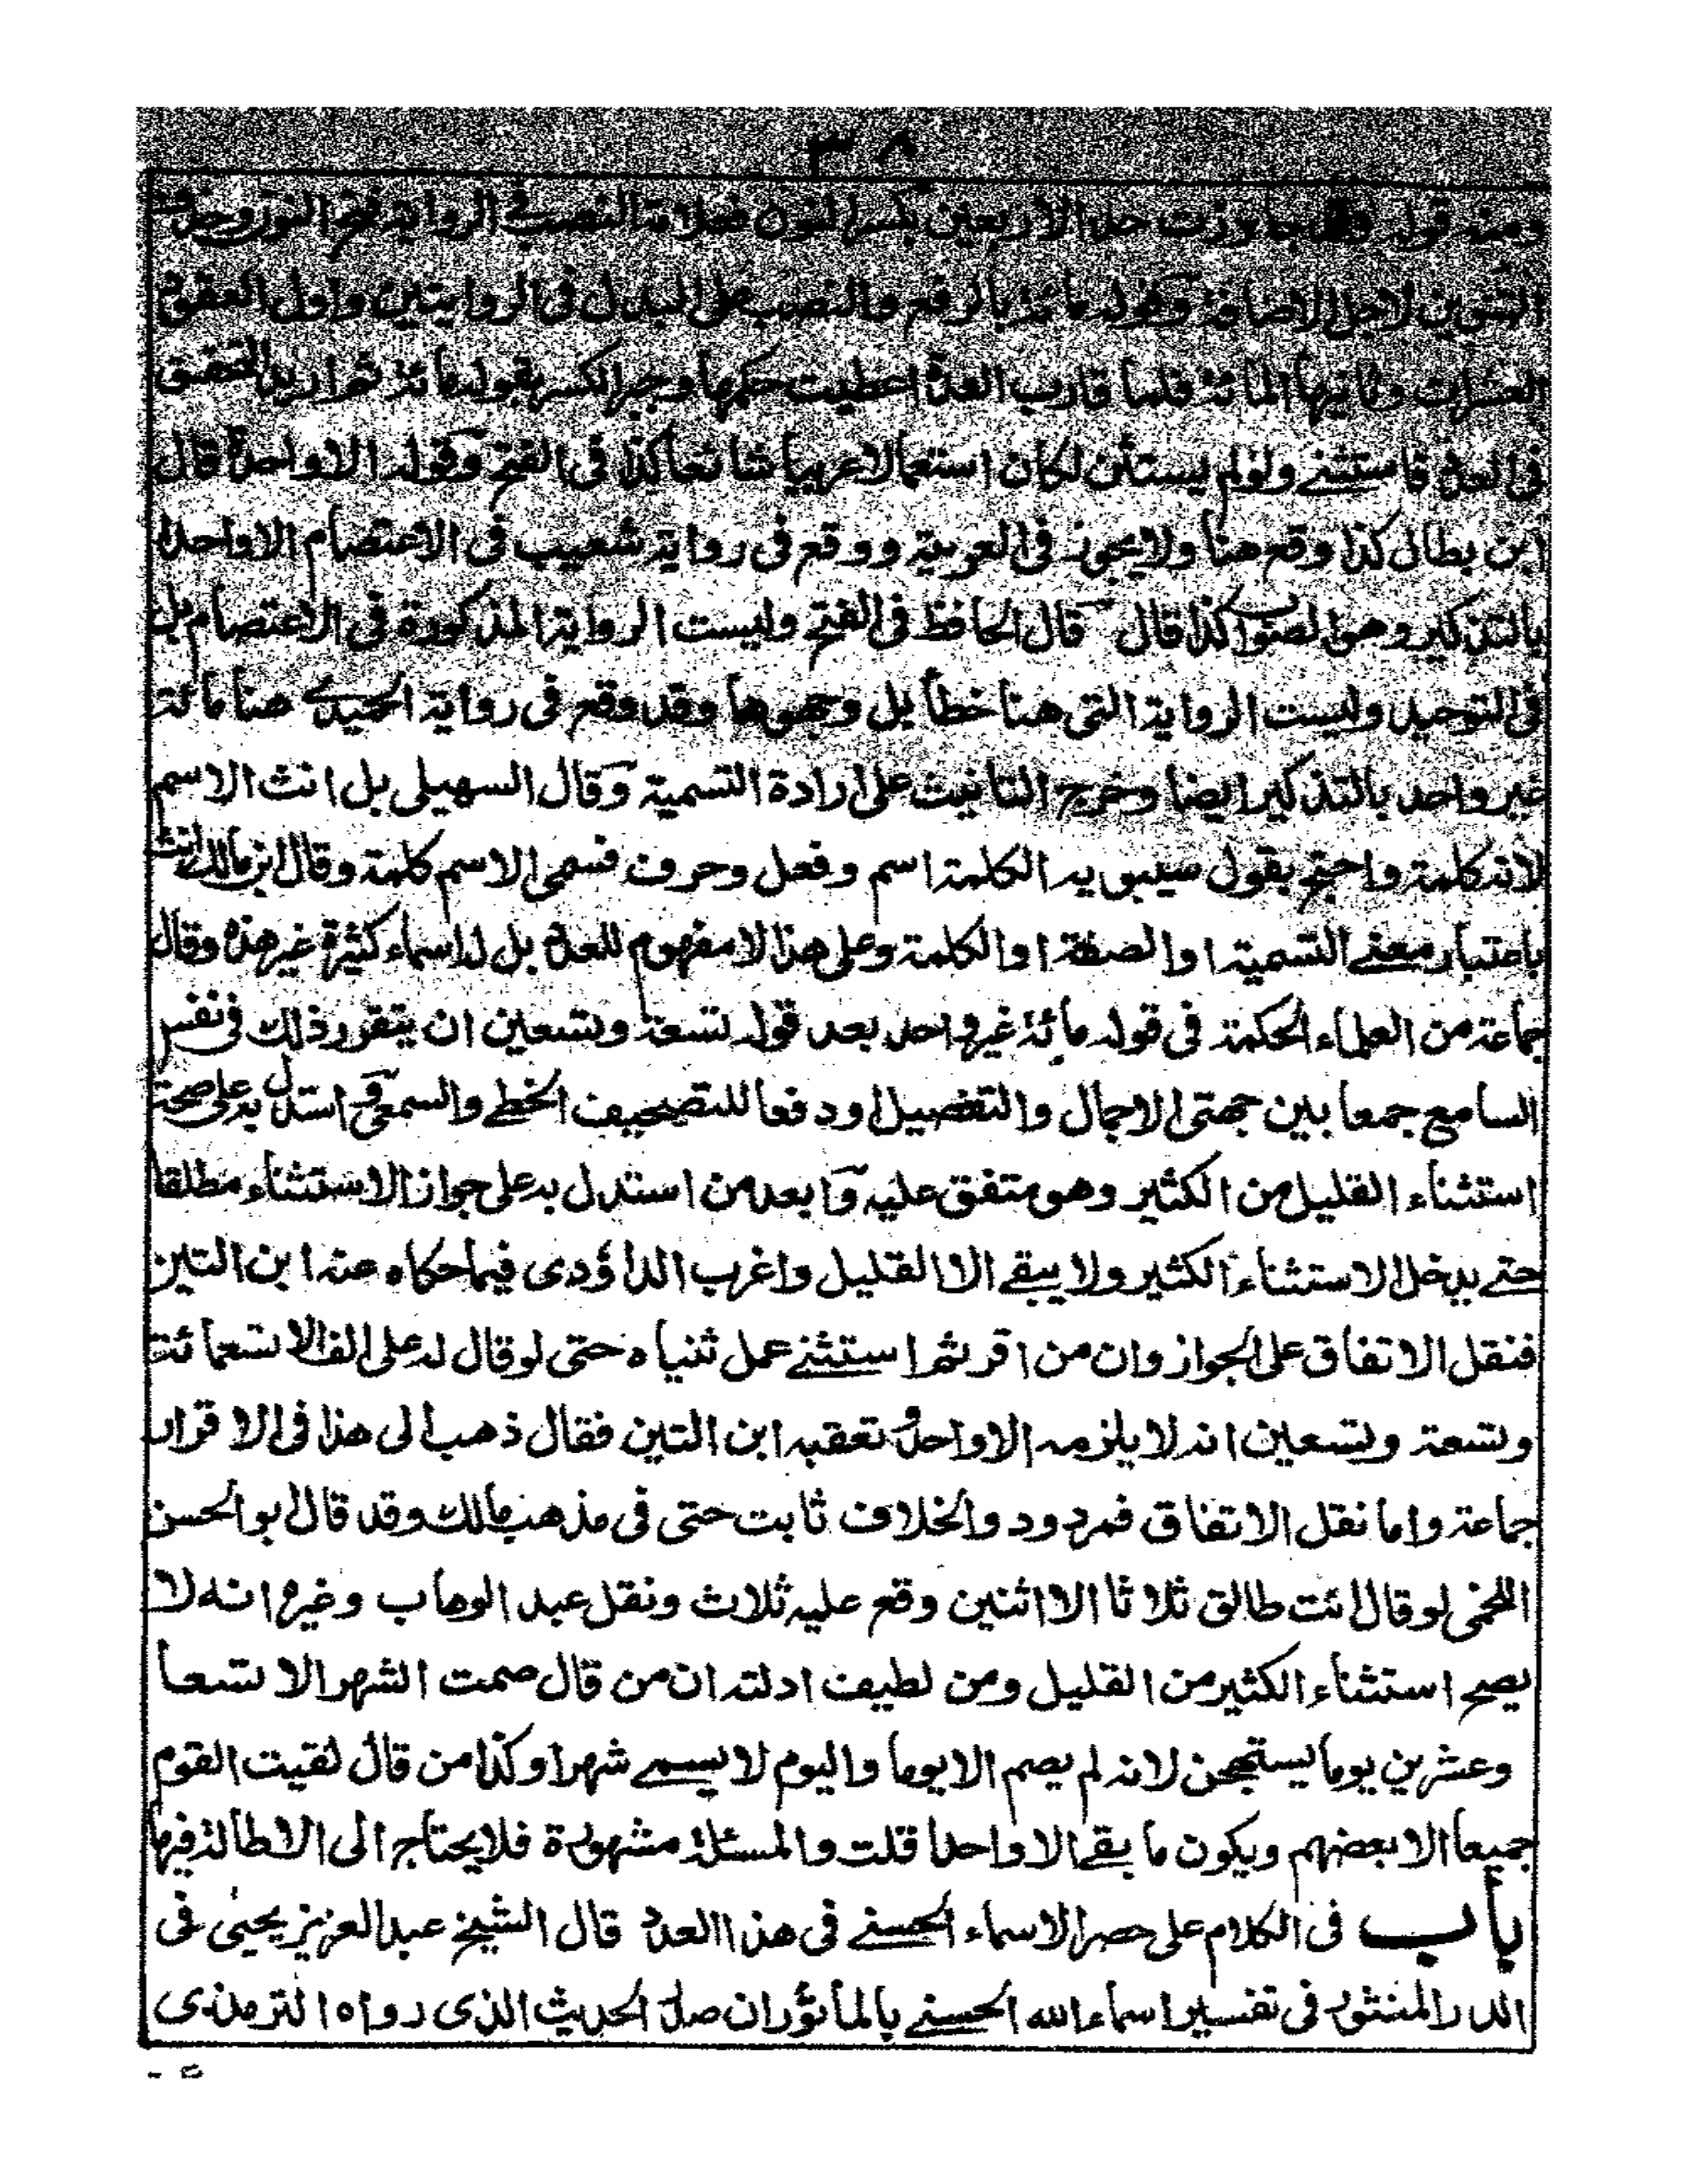 ٣٨
ومنه قوله وقد جاوزت حد الاربعين بكسر النون فعلامة النصب في الرواية فتح النون وحذف
التنوين لاجل الاضافة وقوله مائة بالرفع والنصب على البدل فى الروايتين واول العقود
العشرات وثانيها المائة فلما قارب العدة اعطيت حكمها وجبر الكسر بقوله مائة ثم اريد التحقق
فى العدد فاستثنى ولو لم يستثن لكان استعمالا عربيا شائعا كذا فى الفتح وقوله الا واحدة قال
ابن بطال كذا وقع هنا ولا يجوز فى العربية ووقع فى رواية شعيب فى الاعتصام الا واحدا
بالتذكير وهو الصواب كذا قال قال الحافظ فى الفتح وليست الرواية المذكورة فى الاعتصام بل
فى التوحيد وليست الرواية التى هنا خطأ بل وجهوها وقد وقع فى رواية الحميدى هنا مائة
غير واحد بالتذكير ايضا وخرج التانيث على ارادة التسمية وقال السهيلى بل انث الاسم
لانه كلمة واحتج بقول سيبويه الكلمة اسم وفعل وحرف فسمى الاسم كلمة وقال ابن مالك انث
باعتبار معنى التسمية او الصفة او الكلمة وعلى هذا لا مفهوم للعدد بل له اسماء كثيرة غير هذه وقال
جماعة من العلماء الحكمة فى قوله مائة غير واحد بعد قوله تسعة وتسعين ان يتقرر ذلك فى نفس
السامع جمعا بين جهتى الاجمال والتفصيل او دفعا للتصحيف الخطى والسمعى واستدل به على صحة
استثناء القليل من الكثير وهو متفق عليه وابعد من استدل به على جواز الاستثناء مطلقا
حتے يدخل الاستثناء الكثير ولا يبقے الا القليل واغرب الداؤدى فيما حكاه عنه ابن التين
فنقل الاتفاق على الجواز وان من اقر ثم استثنے عمل ثنياه حتى لو قال له على الف الا تسعمائة
وتسعة وتسعين انه لا يلزمه الا واحد وتعقبه ابن التين فقال ذهب الى هذا فى الاقرار
جماعة واما نقل الاتفاق فمردود والخلاف ثابت حتى فى مذهب مالك وقد قال ابو الحسن
اللخمى لو قال انت طالق ثلاثا الا اثنين وقع عليه ثلاث ونقل عبد الوهاب وغيره انه لا
يصح استثناء الكثير من القليل ومن لطيف ادلته ان من قال صمت الشهر الا تسعا
وعشرين يوما يستهجن لانه لم يصم الا يوما واليوم لا يسمے شهرا وكذا من قال لقيت القوم
جميعا الا بعضهم ويكون ما بقے الا واحدا قلت والمسئلة مشهورة فلا يحتاج الى الاطالة فيها
باب فى الكلام على حصر الاسماء الحسنے فى هذا العدد قال الشيخ عبد العزيز يحيى فى
الدر المنثور فى تفسير اسماء الله الحسنے بالمأثور ان صدر الحديث الذى رواه الترمذى